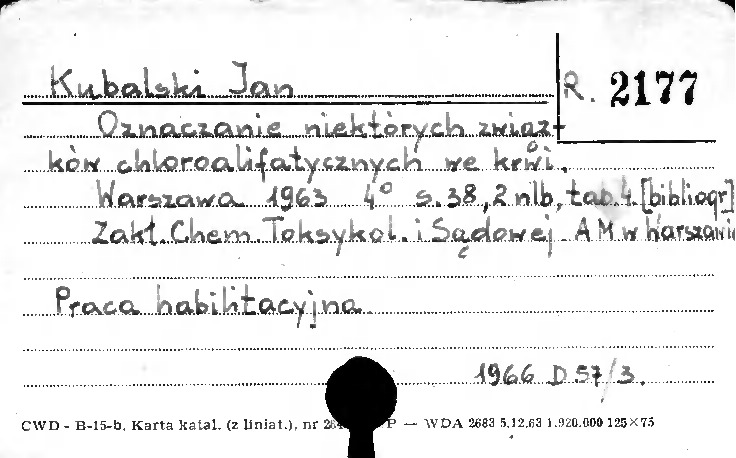 Kubalski Jan
R. 2177
Oznaczanie niektórych związ-
ków chloroalifatycznych we krwi.
Warszawa 1963 4° s.38, 2 nlb, tab.4. [bibliogr]
Zakł. Chem. Toksykol. i Sądowej AM w Warszawie
Praca habilitacyjna
1966 D 57/3.
CWD - B-15-b. Karta katal. (z liniat.), nr P — WDA 2683 5.12.63 1.920.000 125×75